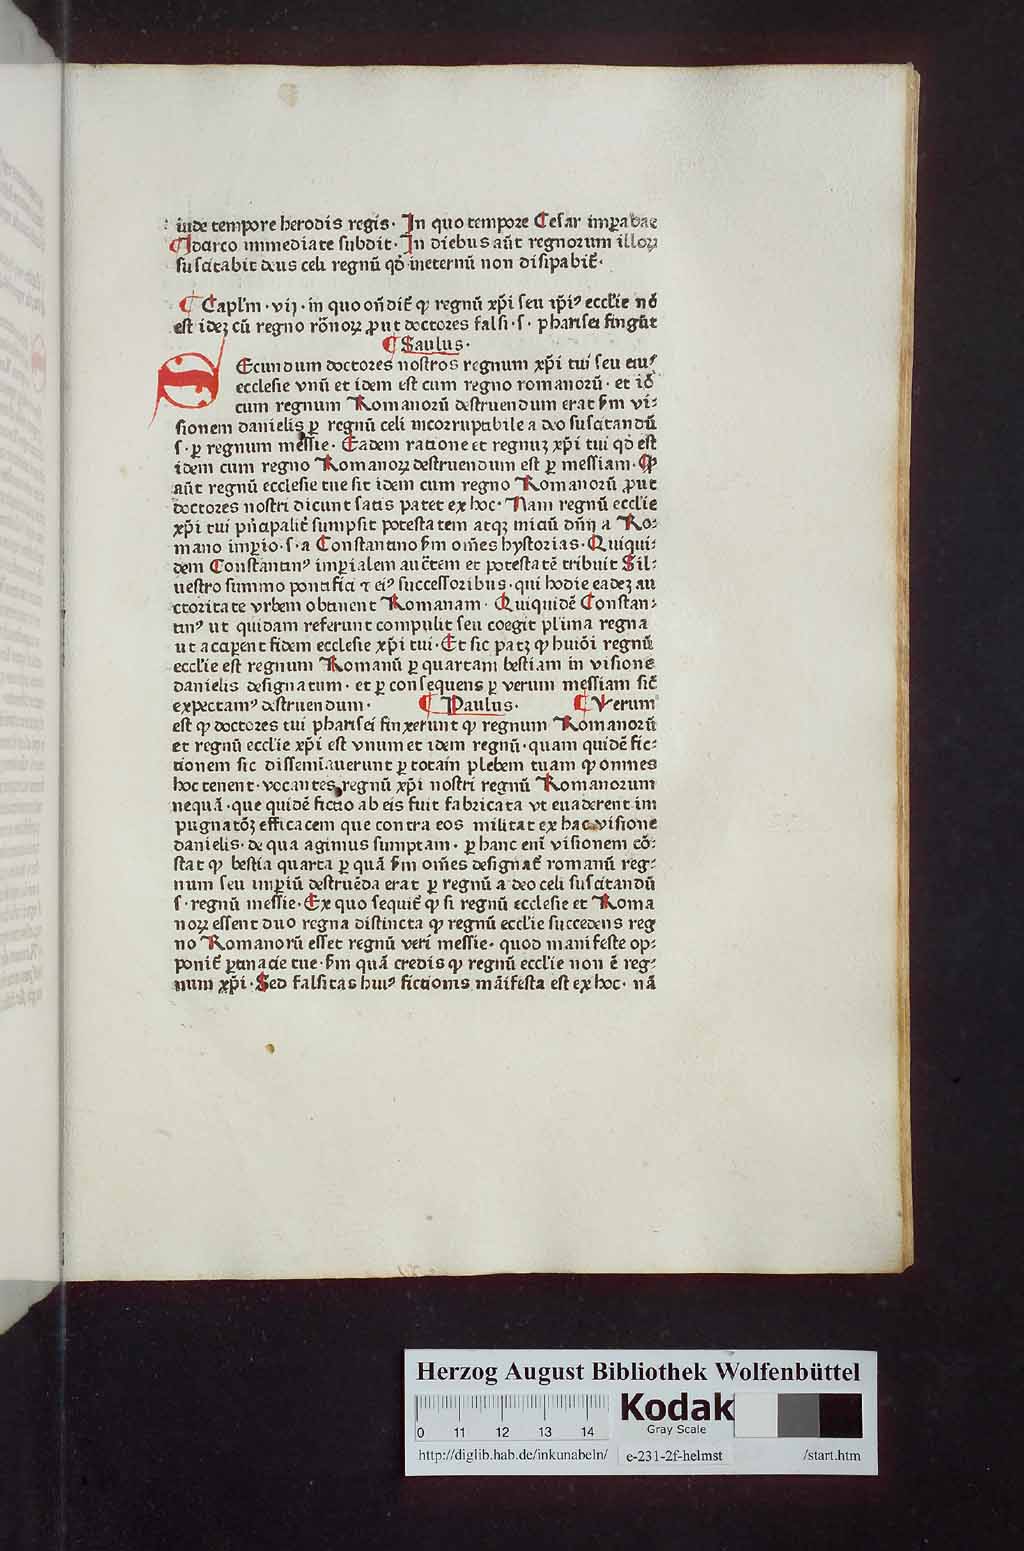 iude tempore herodis regis· In quo tempore Cesar imꝑabat
Marco immediate subdit· In diebus aũt regnorum illoꝝ
suscitabit deus celi regnũ qđ ineternũ non disipabit̃·
¶ Capl'm·vij· in quo oñdit̃ ꝙ regnũ xp̃i seu ip̃iꝰ eccl'ie nõ
est ideꝫ cũ regno rõnoꝝ ꝓut doctores falsi·s· pharisei fingũt
¶ Saulus·
SEcundum doctores nostros regnum xp̃i tui seu eiuꝰ
ecclesie vnũ et idem est cum regno romanorũ· et iõ
cum regnum Romanorũ destruendum erat ẜm vi⸗
sionem danielis ꝑ regnũ celi incorruptibile a deo suscitandũ
s·ꝑ regnum messie· Eadem ratione et regnuꝫ xp̃i tui qđ est
idem cum regno Romanoꝝ destruendum est ꝑ messiam· Ꝙ
aũt regnũ ecclesie tue sit idem cum regno Romanorũ ꝓut
doctores nostri dicunt satis patet ex hoc· Nam regnũ ecclie
xp̃i tui pñcipalit̃ sumpsit potestatem atqꝫ iniciũ dñij a Ro⸗
mano imꝑio·s·a Constantino ẜm om̃es hystorias· Quiqui⸗
dem Constantinꝰ imꝑialem auc̃tem et potestatẽ tribuit Sil⸗
uestro summo pontifici ⁊ eiꝰ successoribus· qui hodie eadeꝫ au
ctoritate vrbem obtinent Romanam· Quiquidẽ Constan⸗
tinꝰ ut quidam referunt compulit seu coegit pl'ima regna
ut acciꝑent fidem ecclesie xp̃i tui· Et sic patꝫ ꝙ huiõi regnũ
eccl'ie est regnum Romanũ ꝑ quartam bestiam in visione
danielis designatum· et ꝑ consequens ꝑ verum messiam sic̃
expectamꝰ destruendum· ¶ Paulus· ¶ Verum
est ꝙ doctores tui pharisei finxerunt ꝙ regnum Romanorũ
et regnũ eccl'ie xp̃i est vnum et idem regnũ· quam quidẽ fic⸗
tionem sic disseminauerunt ꝑ totam plebem tuam ꝙ omnes
hoc tenent· vocantes regnũ xp̃i nostri regnũ Romanorum
nequã· que quidẽ fictio ab eis fuit fabricata vt euaderent im
pugnatõꝫ efficacem que contra eos militat ex hac visione
danielis· de qua agimus sumptam· ꝑ hanc enĩ visionem cõ⸗
stat ꝙ bestia quarta ꝑ quã ẜm om̃es designat̃ romanũ reg⸗
num seu imꝑiũ destruẽda erat ꝑ regnũ a deo celi suscitandũ
s·regnũ messie· Ex quo sequit̃ ꝙ si regnũ ecclesie et Roma
noꝝ essent duo regna distincta ꝙ regnũ eccl'ie succedens reg
no Romanorũ esset regnũ veri messie· quod manifeste op⸗
ponit̃ ꝑtinacie tue· ẜm quã credis ꝙ regnũ eccl'ie non ẽ reg⸗
num xp̃i· Sed falsitas huiꝰ fictionis mãifesta est ex hoc· nã
Herzog August Bibliothek Wolfenbüttel
0 11 12 13 14
Kodak
Gray Scale
http://diglib.hab.de/inkunabeln/ e-231-2f-helmst /start.htm